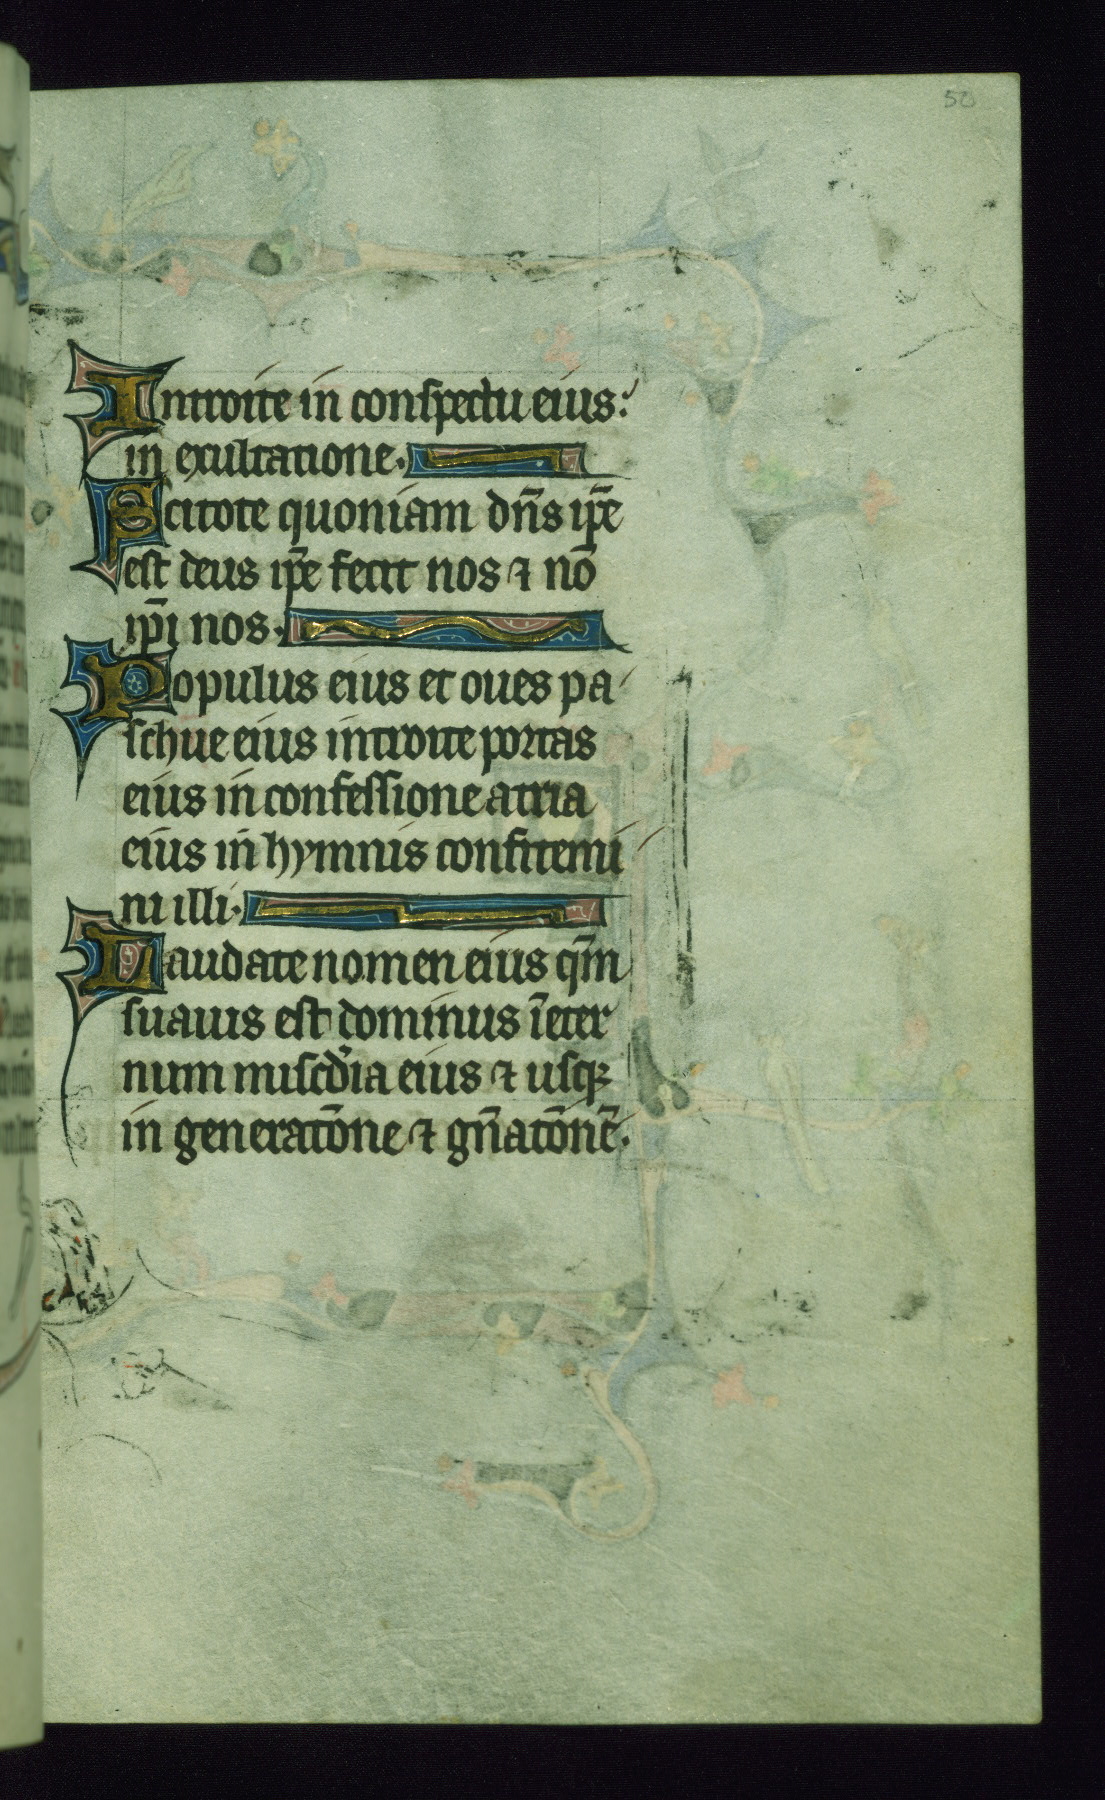 50
Introite in conspectu eius:
in exultatione.
Scitote quoniam dn̄s ip̄e
est deus ip̄e fecit nos ⁊ nō
ip̄i nos.
Populus eius et oues pa
schue eius introite portas
eius in confessione atria
eius in hymnis confitemi
ni illi.
Laudate nomen eius qm̄
suauis est dominus ī eter
num miscd̄ia eius ⁊ usqꝫ
in generatōne ⁊ gn̄atōnē.